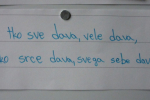 tko sve dava, vele dava,
ko srce dava, svega sebe dav